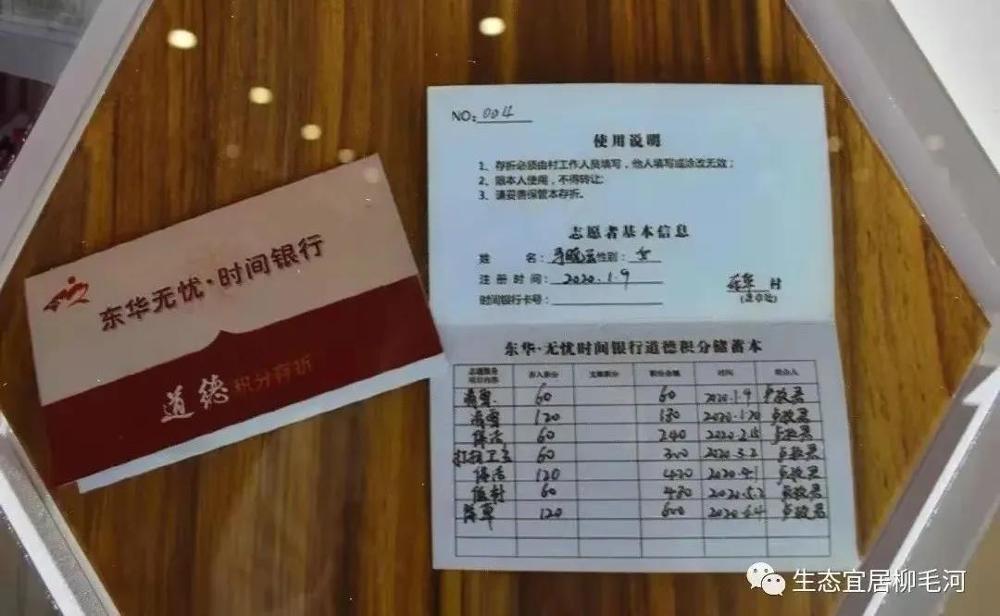 东华无忧·时间银行
道德积分存折
NO：004
使用说明
1、存折必须由村工作人员填写，他人填写或涂改无效；
2、限本人使用，不得转让；
3、请妥善保管本存折。
志愿者基本信息
姓 名： 性别：女
注册时间：2020.1.9
时间银行卡号：
东华 村
(盖章处)
东华·无忧时间银行道德积分储蓄本
志愿服务项目内容 存入积分 支取积分 积分余额 时间 经办人
清雪 60 60 2020.1.9
清雪 120 180 2020.1.20
保洁 60 240 2020.2.15
打扫卫生 60 300 2020.3.2
保洁 120 420 2020.4.1
植树 60 480 2020.5.2
除草 120 600 2020.6.4
生态宜居柳毛河